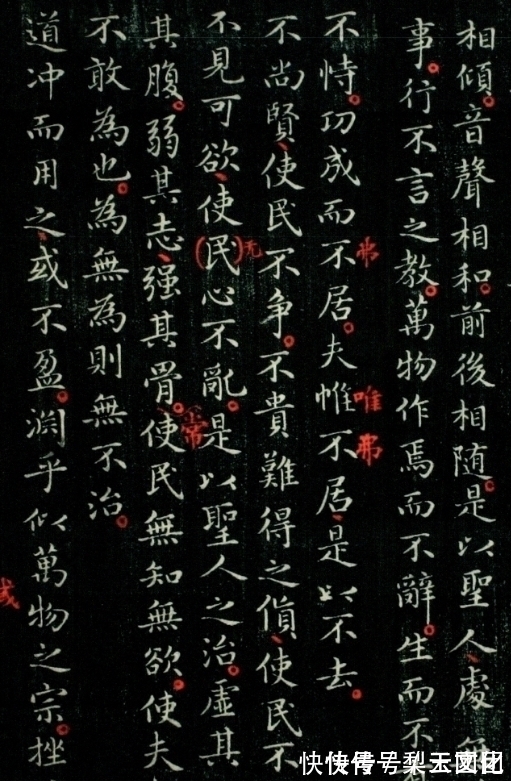 相傾。音聲相和。前後相随。是以聖人、處無
事。行不言之教。萬物作焉而不辭。生而不
不恃。功成而不居。夫惟不居、是以不去。
弗
唯弗
不尚賢、使民不争。不貴難得之貨、使民不
不見可欲、使(民)心不亂。是以聖人之治。虚其
无
其腹。弱其志、强其骨。使民無知無欲。使夫
常
不敢為也。為無為則無不治。
道冲而用之、或不盈。渊乎似萬物之宗。挫
或
快快传号/梨王图团